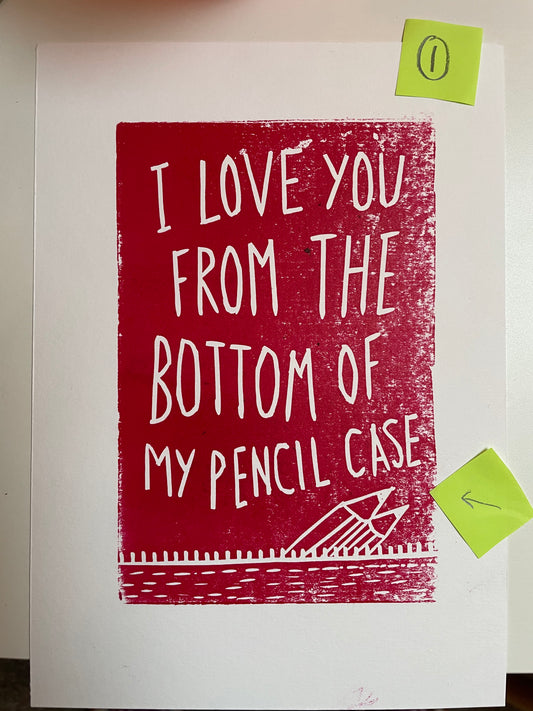 1
I LOVE YOU
FROM THE
BOTTOM OF
MY PENCIL CASE